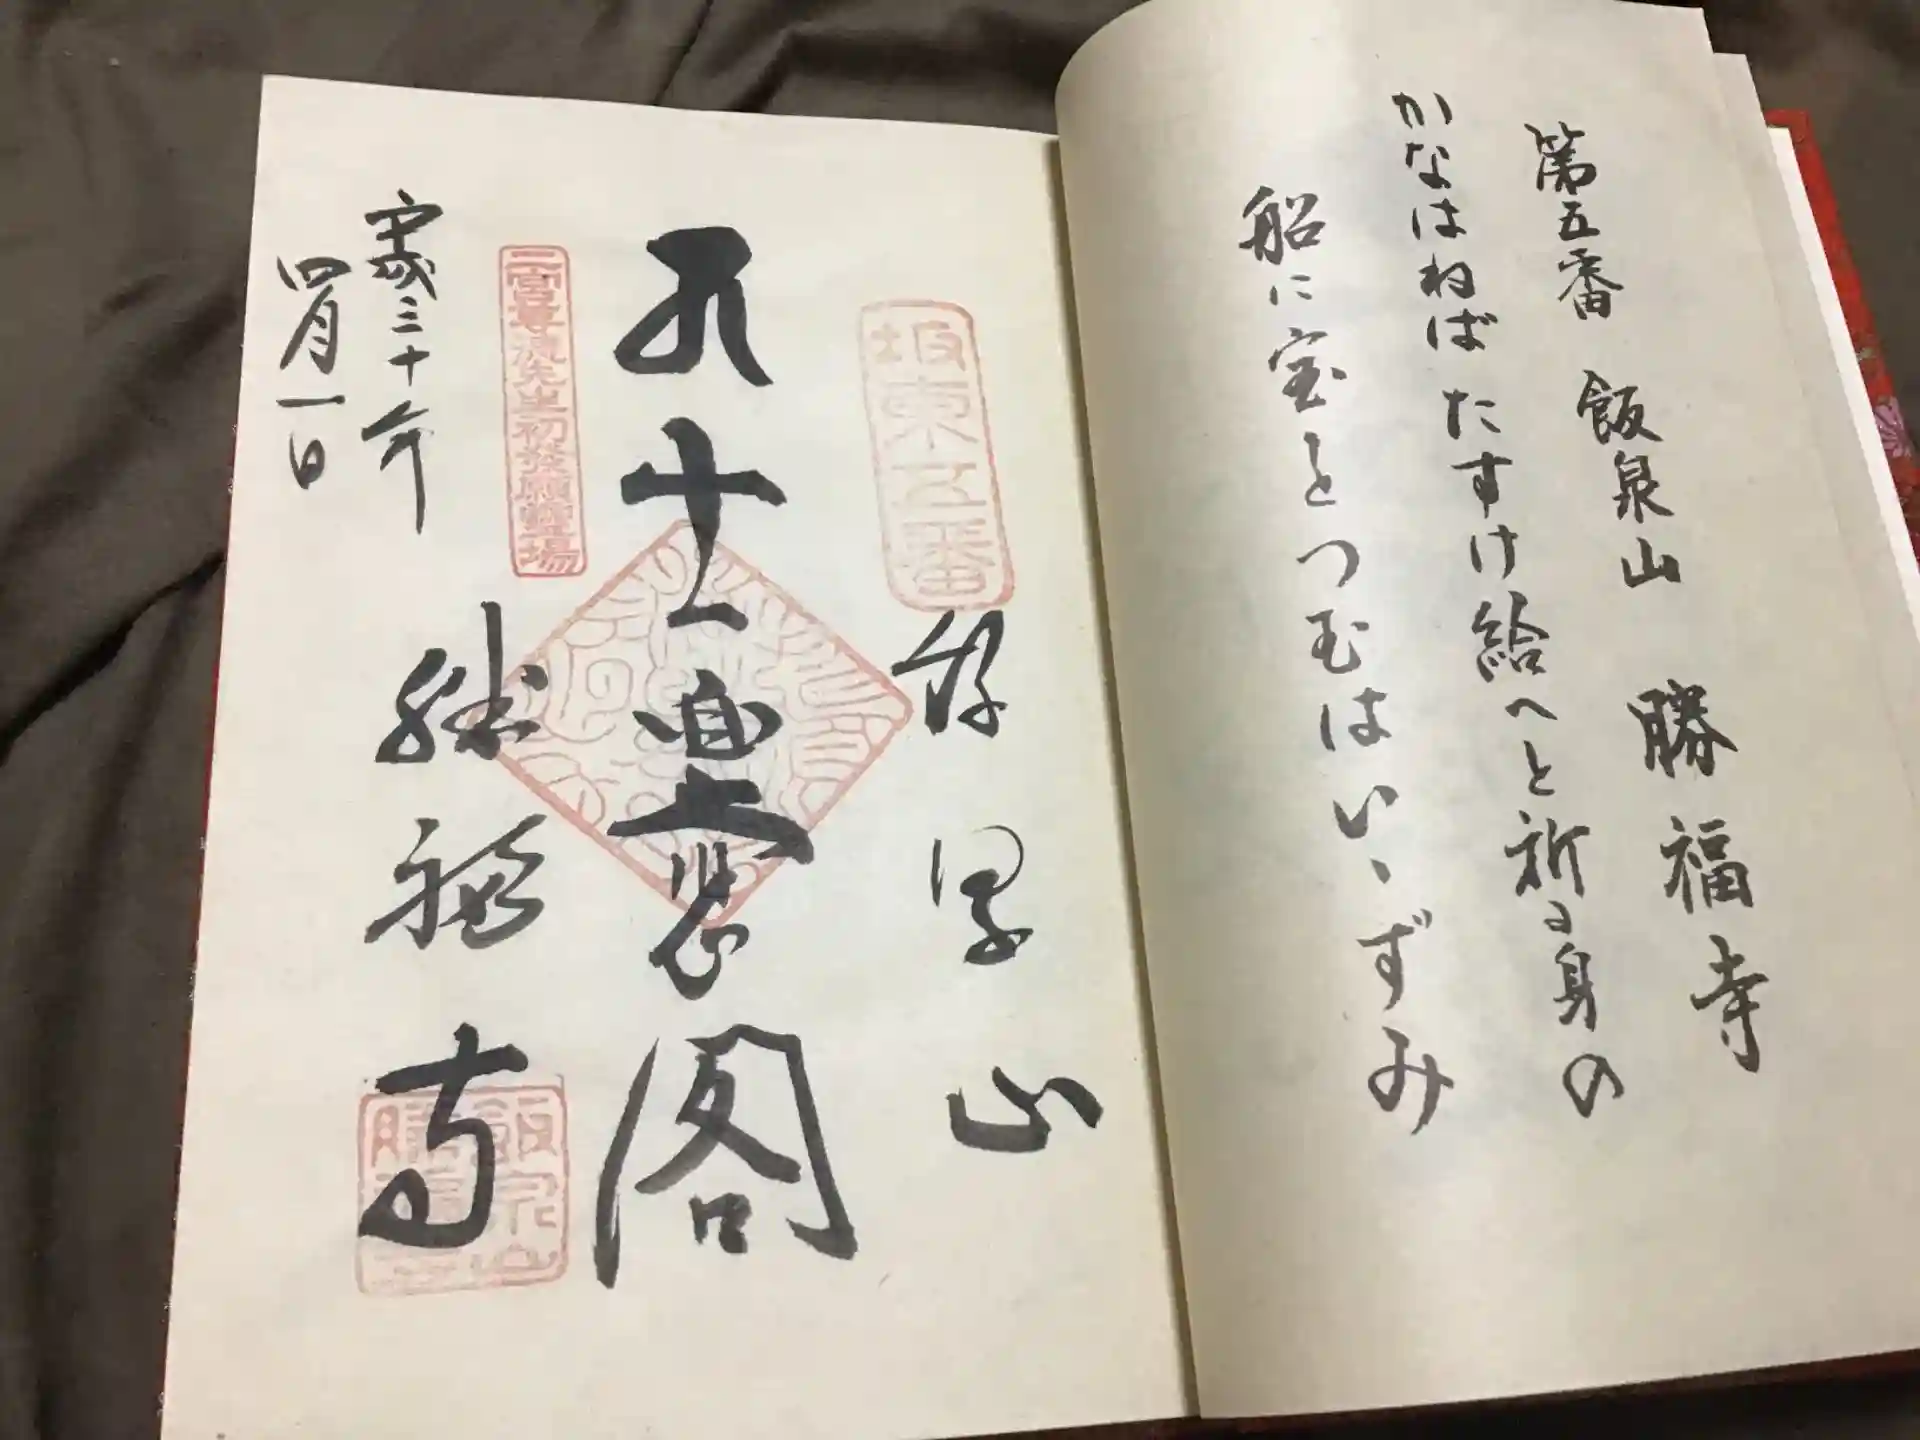 第五番 飯泉山 勝福寺
かなはねば たすけ給へと祈る身の
船に宝をつむはいゝずみ
坂東五番
飯泉山
十一面大悲閣
二宮尊德先生初發願靈場
勝福寺
平成三十年
四月一日